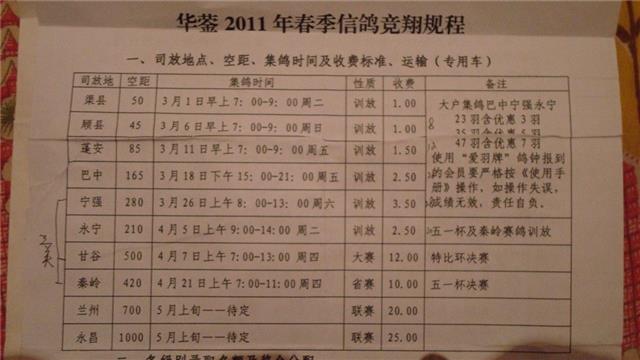 华蓥 2011 年春季信鸽竞翔规程
一、司放地点、空距、集鸽时间及收费标准、运输（专用车）
司放地 空距 集鸽时间 性质 收费 备注
渠县 50 3 月 1 日早上 7：00-9：00 周二 训放 1.00
顾县 45 3 月 6 日早上 7：00-9：00 周日 训放 1.00
蓬安 85 3 月 11 日早上 7：00-9：00 周五 训放 1.50
巴中 165 3 月 18 日下午 15：00-21：00 周五 训放 2.50
宁强 280 3 月 26 日上午 8：00-13：00 周六 训放 3.50
大户集鸽巴中宁强永宁
23 羽含优惠 3 羽
35 羽含优惠 5 羽
47 羽含优惠 7 羽
使用“爱羽牌”鸽钟报到
的会员要严格按《使用手
册》操作，如操作失误，
成绩无效，责任自负。
永宁 210 4 月 5 日上午 9:00-14:00 周二 训放 2.50 五一杯及秦岭赛鸽训放
甘谷 500 4 月 7 日上午 7:00-13:00 周四 大赛 12.00 特比环决赛
秦岭 420 4 月 21 日上午 7:00-11:00 周四 省赛 10.00 五一杯决赛
兰州 700 5 月上旬——待定 联赛 20.00
永昌 1000 5 月上旬——待定 联赛 25.00